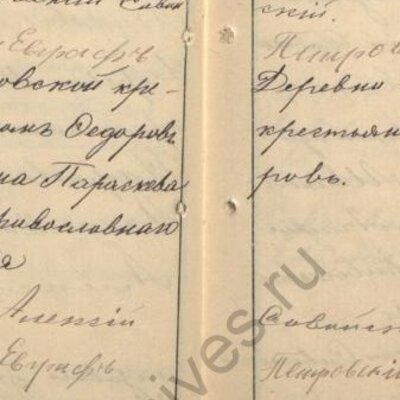 Евграфъ
овской кре-
Ѳедоровъ
на Параскева
православнаго
я
Алексій
Евграфъ
скій.
Петров
Деревни
крестьян
ровъ.
Савинск
Петровскій
ives.ru